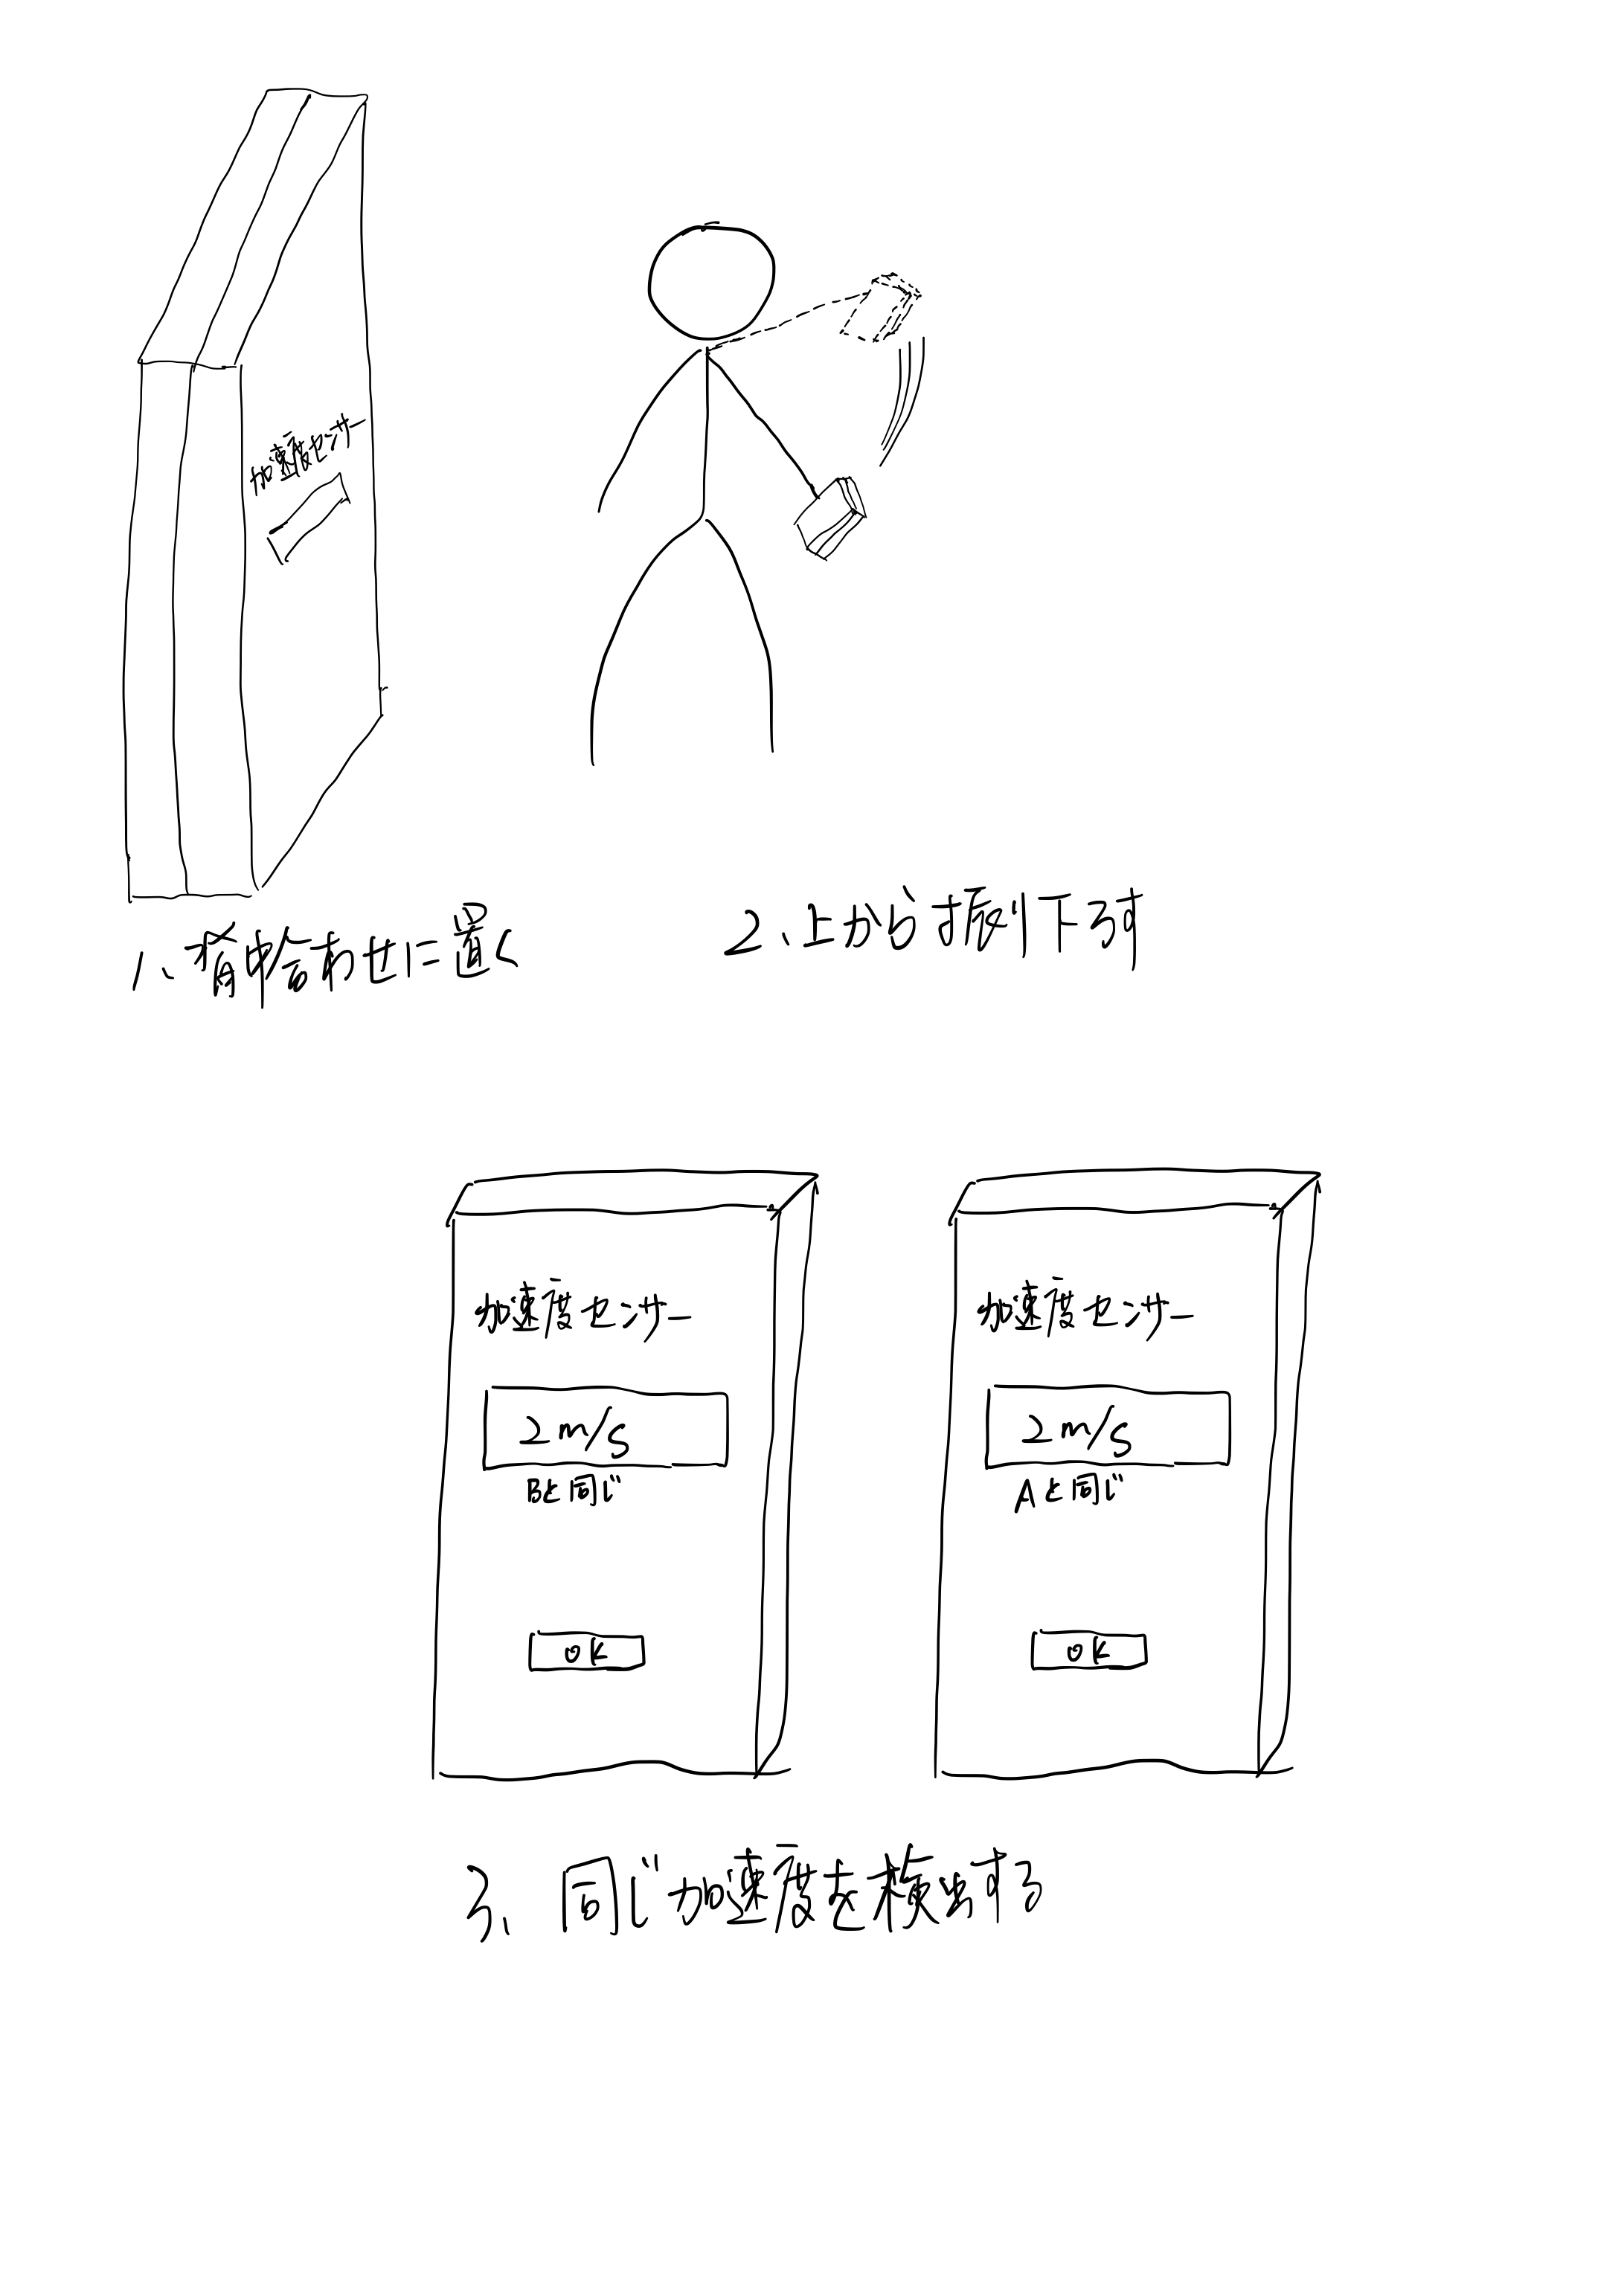 加速度センサー
1、背中合わせに置く
2、上から振り下ろす
加速度センサー
2m/s
Bと同じ
OK
加速度センサー
2m/s
Aと同じ
OK
3、同じ加速度を検出する